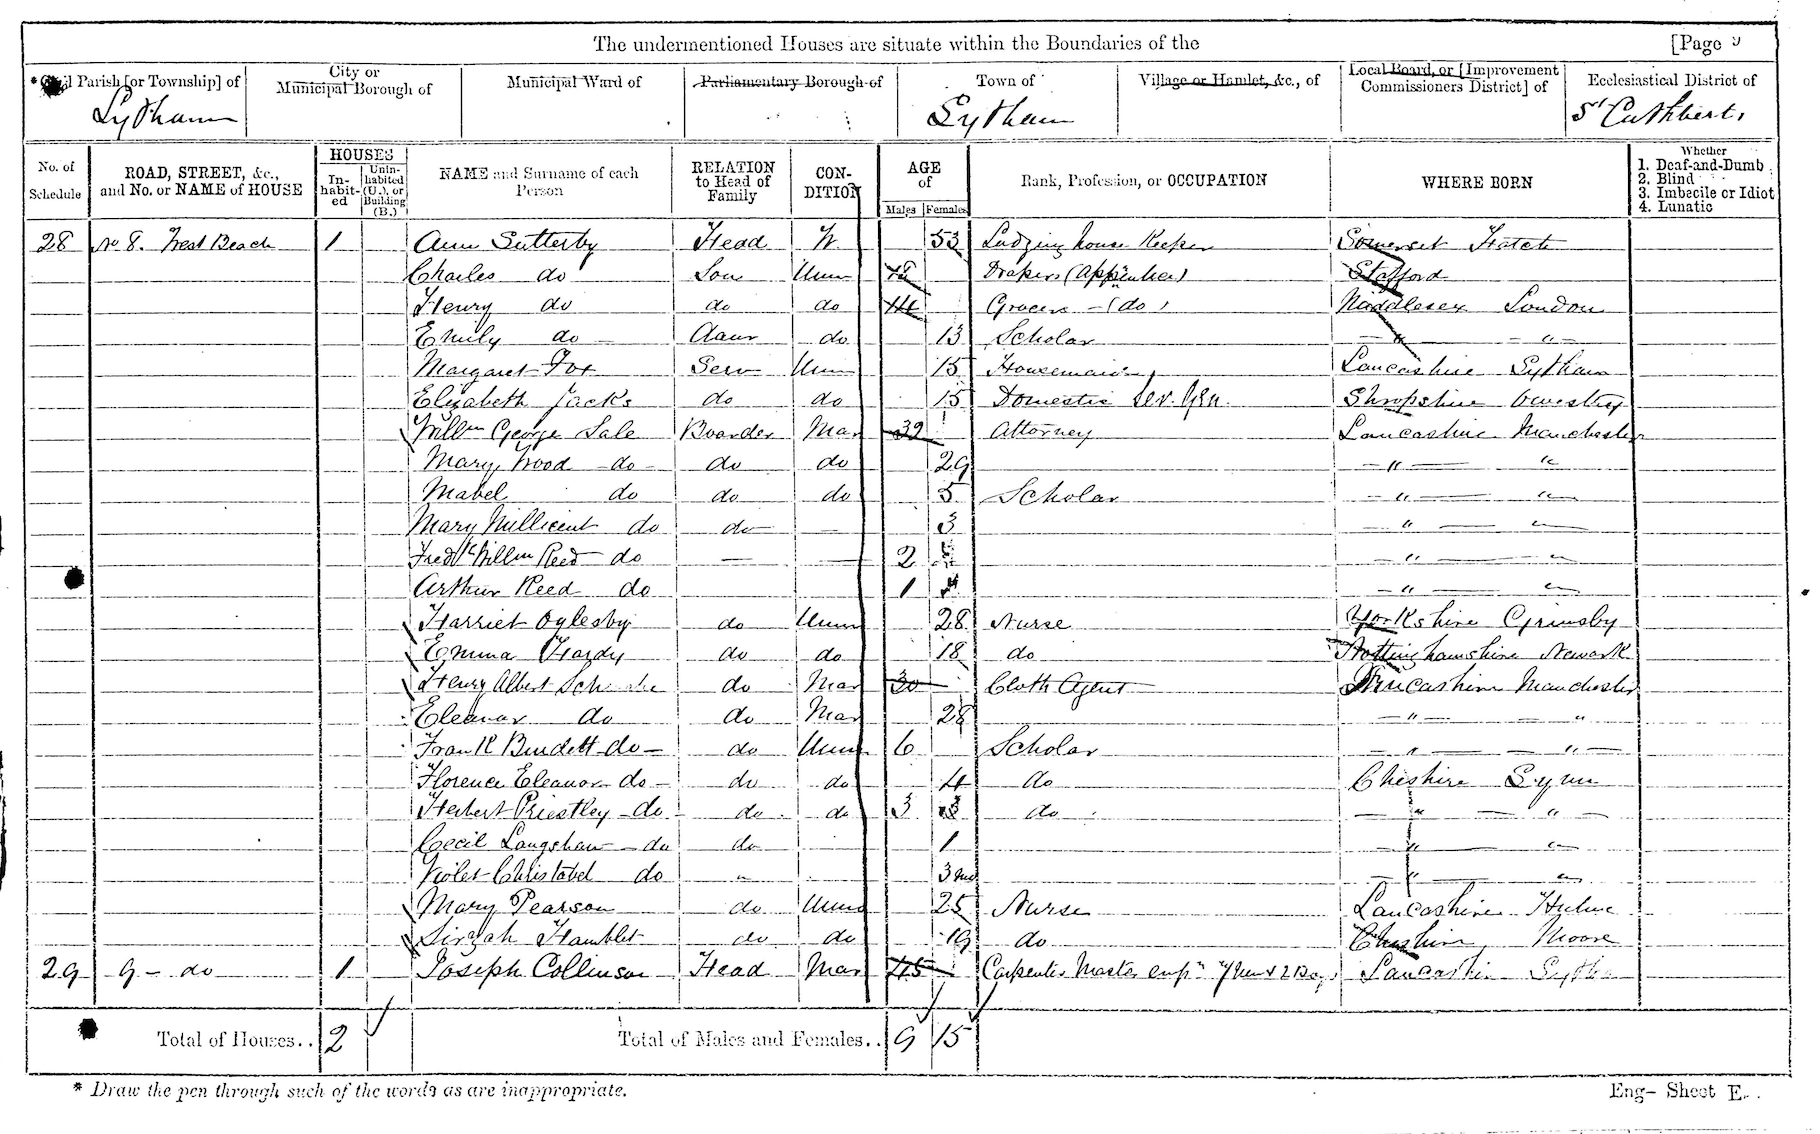 The undermentioned Houses are situate within the Boundaries of the [Page 9
* Civil Parish [or Township] of City or Municipal Borough of Municipal Ward of Parliamentary Borough of Town of Village or Hamlet, &c., of Local Board, or [Improvement Commissioners District] of Ecclesiastical District of
Lytham Lytham St Cuthberts
No. of Schedule ROAD, STREET, &c., and No. or NAME of HOUSE HOUSES Inhabited Uninhabited (U.), or Building (B.) NAME and Surname of each Person RELATION to Head of Family CONDITION AGE of Males Females Rank, Profession, or OCCUPATION WHERE BORN Whether 1. Deaf-and-Dumb 2. Blind 3. Imbecile or Idiot 4. Lunatic
28 No 8. West Beach 1 Ann Sutterby Head W 53 Lodging house Keeper Somerset Hatch
Charles do Son Unm 18 Drapers (Apprentice) Stafford
Henry do do do 14 Grocers - (do) Middlesex London
Emily do Daur do 13 Scholar — " — — " —
Margaret Fox Serv Unm 15 Housemaid Lancashire Lytham
Elizabeth Jacks do do 15 Domestic Ser. Gen. Shropshire Oswestry
Willm George Sale Boarder Mar 32 Attorney Lancashire Manchester
Mary Wood do do do 29 — " — "
Mabel do do do 5 Scholar — " — "
Mary Millicent do do — 3 — " — "
Fredk Willm Reed do — — 2 — " — "
Arthur Reed do 1 — " — "
Harriet Oglesby do Unm 28 Nurse Yorkshire Grimsby
Emma Hardy do do 18 do Nottinghamshire Newark
Henry Albert do Mar 30 Cloth Agent Lancashire Manchester
Eleanor do do Mar 28 — " — "
Frank Burdett do do Unm 6 Scholar — " — — " —
Florence Eleanor do do do 4 do Cheshire Lymm
Herbert Priestley do do do 3 do — " — — " —
Cecil Langshaw do do 1 — " — "
Violet Christabel do " 3 mo — " — "
Mary Pearson do Unm 25 Nurse Lancashire Hulme
Sirzah Hamblet do do 19 do Cheshire Moore
29 9 - do 1 Joseph Collinson Head Mar 45 Carpenter Master empg 7 Men & 2 Boys Lancashire Lytham
Total of Houses.. 2 Total of Males and Females.. 9 15
* Draw the pen through such of the words as are inappropriate. Eng- Sheet E.